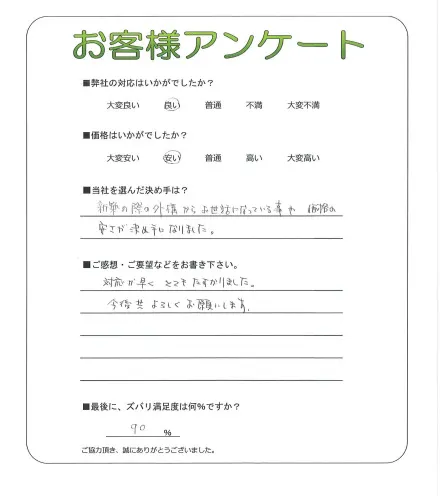 お客様アンケート
■弊社の対応はいかがでしたか?
大変良い 良い 普通 不満 大変不満
■価格はいかがでしたか?
大変安い 安い 普通 高い 大変高い
■当社を選んだ決め手は?
新築の際の外構からお世話になっている事や 価格の
安さが決め手になりました。
■ご感想・ご要望などをお書き下さい。
対応が早く とてもたすかりました。
今後共よろしくお願いします。
■最後に、ズバリ満足度は何%ですか?
90 %
ご協力頂き、誠にありがとうございました。